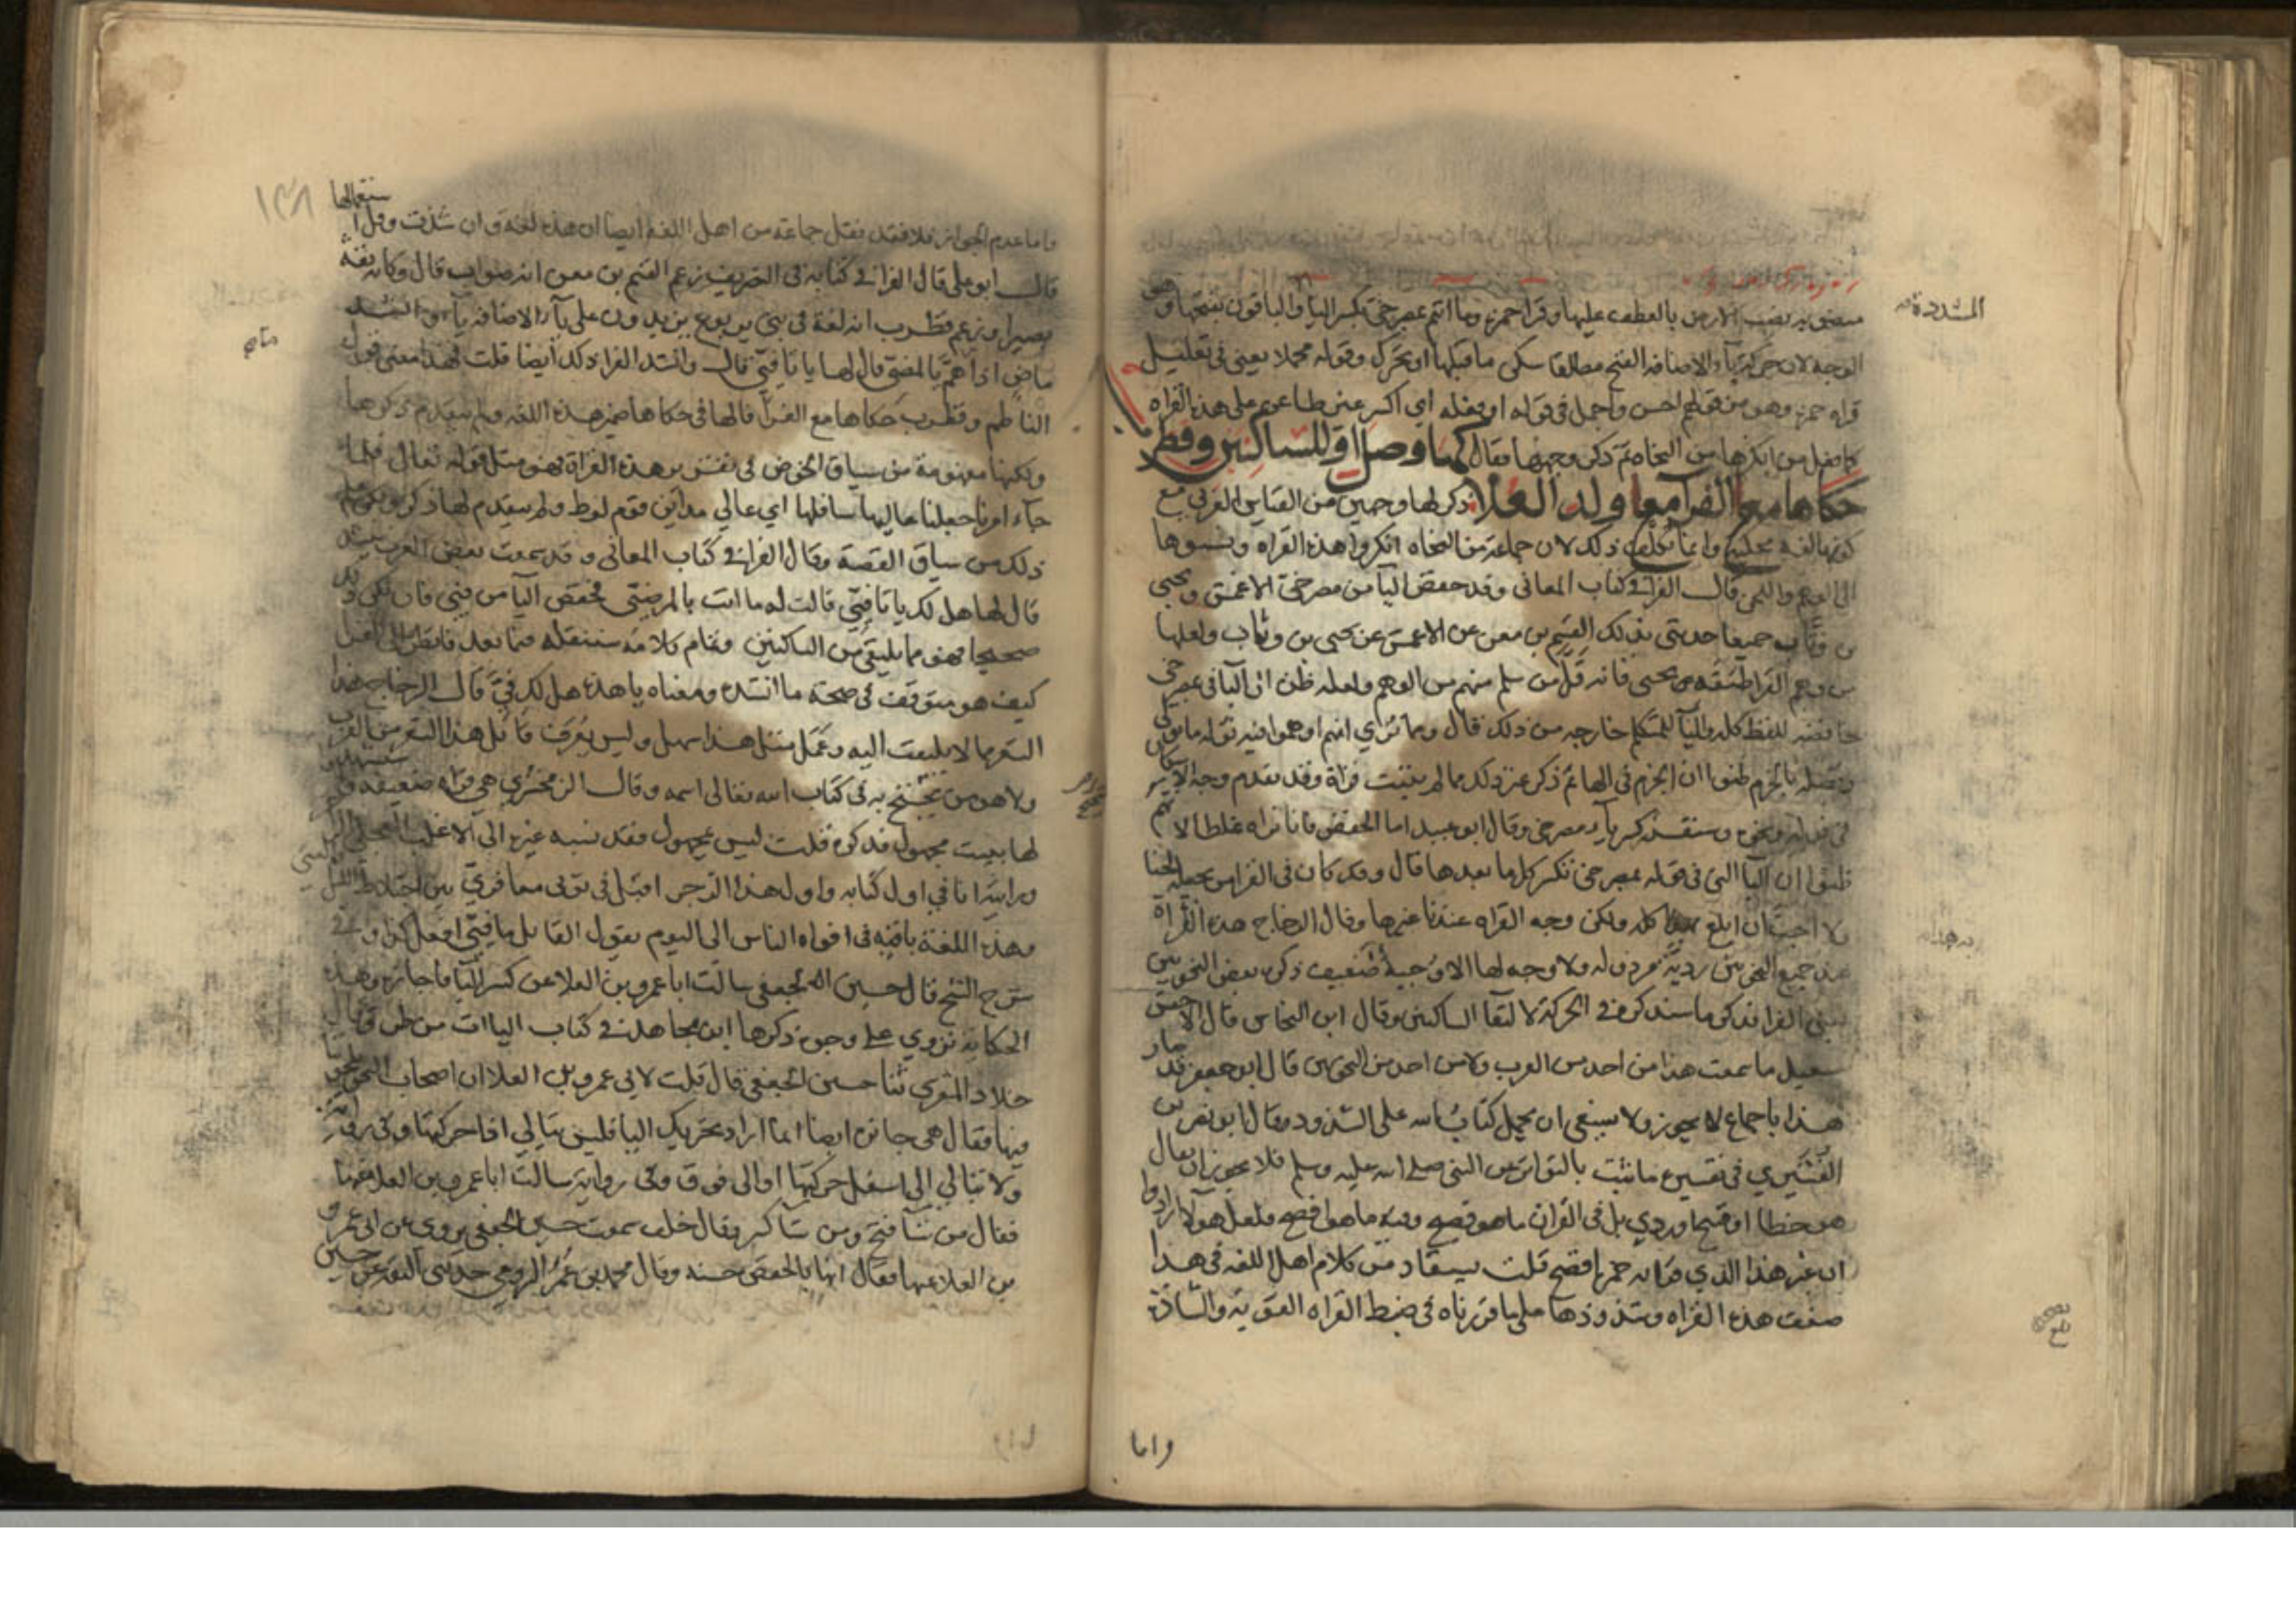 المشددة
معنى به نصب الارض بالعطف عليها وقرا حمزة وما انتم بمصرخي بكسر اليا والباقون بفتحها وهو
الوجه لان حركة ياء الاضافة الفتح مطلقا سكن ما قبلها او تحرك وقوله مجملا يعني في تعليل
قراه حمزة وهو من قولهم احسن واجمل في قوله او فعله اي اكسر غير طاعن على هذه القراه
كما فعل من انكرها من النحاه ثم ذكر وجهها فقال كها وصل او للساكنين وقطرب
حكاها مع الفرا مع ولد العلا ذكر لها وجهين من القياس العربي مع
كونها لغة محكية وانما تكلف ذلك لان جماعة من النحاه انكروا هذه القراه ونسبوها
الى الوهم واللحن قال الفرا في كتاب المعاني وقد خفض اليا من مصرخي الاعمش ويحيى
بن وثاب جميعا حدثني بذلك القسم بن معن عن الاعمش عن يحيى بن وثاب ولعلها
من وهم القرا طبقة يحيى فانه قل من سلم منهم من الوهم ولعله ظن ان اليا في بمصرخي
خافضة للفظ كله واليا للمتكلم خارجه من ذلك قال ومما نرى انهم اوهموا فيه نوله ما تولى
ونصله بالجزم ظنوا ان الجزم في الها ثم ذكر غير ذلك مما لم يثبت قراة وقد تقدم وجه الاسكان
في نوله ونحوه وقال ابو عبيد اما الخفض فانا نراه غلطا لانهم
ظنوا ان اليا التي في قوله بمصرخي تكسر كل ما بعدها قال وقد كان في القرا من يجعله لحنا
ولا احب ان ابلغ به هذا كله ولكن وجه القراه عندنا غيرها وقال الزجاج هذه القراة
عند جميع النحويين رديه مرذوله ولا وجه لها الا وجيه ضعيف ذكره بعض النحويين
يعني الفرا فذكر ما سنذكره في الحركة لالتقا الساكنين وقال ابن النحاس قال الاخفش
سعيد ما سمعت هذا من احد من العرب ولا من احد من النحويين قال ابو جعفر قد صار
هذا باجماع لا يجوز ولا ينبغي ان يحمل كتاب الله على الشذوذ وقال ابو نصر بن
القشيري في تفسيره ما ثبت بالتواتر عن النبي صلى الله عليه وسلم فلا يجوز ان يقال
هو خطا او قبيح او ردي بل في القران ما هو فصيح وفيه ما هو افصح فلعل هولا ارادوا
ان غير هذا الذي قرا به حمزة افصح قلت يستفاد من كلام اهل اللغه في هذا
ضعف هذه القراه وشذوذها على ما قررناه في ضبط القراه القويه والشاذة
واما
١٣٨
واما عدم الجواز فلا فقد نقل جماعة من اهل اللغه ايضا ان هذه لغة وان شذت وقل استعمالها
قال ابو علي قال الفرا في كتابه في التصريف زعم القسم بن معن انه صواب قال وكان ثقة
بصيرا وزعم قطرب انه لغة في بني يربوع يزيدون على ياء الاضافة ياء وانشد
ماض اذا ما هم بالمضي قال لها هل لك يا تا في قال وانشد الفرا ذلك ايضا قلت فهذا معنى قول
الناظم وقطرب حكاها مع الفرا فالها في حكاها ضمير هذه اللغه ولم يتقدم ذكرها
ولكنها مفهومة من سياق الخوض في تقرير هذه القراة فهو مثل قوله تعالى فلما
جآء امرنا جعلنا عاليها سافلها اي عالي مدائن قوم لوط ولم يتقدم لها ذكر ولكن علم
ذلك من سياق القصة وقال الفرا في كتاب المعاني وقد سمعت بعض العرب ينشد
قال لها هل لك يا تا في قالت له ما انت بالمرضي فخفض اليا من في فان يكن ذلك
صحيحا فهو مما يلتقي من الساكنين وتمام كلامه سننقله فيما بعد فانظر الى الفرا
كيف هو متوقف في صحة ما انشده ومعناه يا هذه هل لك في قال الزجاج هذا
الشعر مما لا يلتفت اليه وعمل مثل هذا سهل وليس يعرف قائل هذا الشعر من العرب
ولا هو ممن يحتج به في كتاب الله تعالى اسمه وقال الزمخشري هي قراه ضعيفه واستشهدوا
لها ببيت مجهول فذكره قلت ليس بمجهول فقد نسبه غيره الى الاغلب العجلي الراجز
ورايته انا في اول كتابه واول هذا الرجز اقبل في ثوبي معافري بين اختلاط الليل والعشي
وهذه اللغة باقية في افواه الناس الى اليوم يقول القائل ما في افعل كذا وفي
شرح الشيخ قال حسين الجعفي سالت ابا عمرو بن العلا عن كسر اليا فاجازه وهذه
الحكاية تروي على وجوه ذكرها ابن مجاهد في كتاب الياات من طرق قال
خلاد المقري ثنا حسين الجعفي قال قلت لابي عمرو بن العلا ان اصحاب النحو يلحنونا
فيها فقال هي جائزة ايضا انما اراد تحريك اليا فليس تبالي اذا حركتها وفي رواية
ولا تبالي الى اسفل حركتها او الى فوق وفي رواية سالت ابا عمرو بن العلا عنها
فقال من شآ فتح ومن شآ كسر وقال خلف سمعت حسين الجعفي يروي عن ابي عمرو
بن العلا عنها فقال انها بالخفض حسنه وقال محمد بن عمر الرومي حدثني الثقة عن حسين